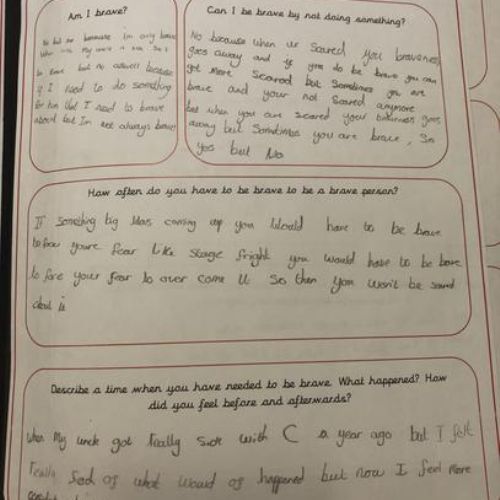 Am I brave?
because im only brave
when my uncle is
to brave but no because
if I need to do something
for him that I need to brave
about but Im not always brave
Can I be brave by not doing something?
No because when ur scared you braveness
goes away and if you do be brave you can
get more scared but sometimes you are
brave and your not scared anymore
but when you are scared your goes
away but sometimes you are brave, so
yes but No
How often do you have to be brave to be a brave person?
If something big was coming up you would have to be brave
to face youre fear like stage fright you would have to be brave
to face your fear to over come it so then you won't be scared
about it
Describe a time when you have needed to be brave. What happened? How
did you feel before and afterwards?
When my uncle got really sick with C a year ago but I felt
really sad of what would of happened but now I feel more